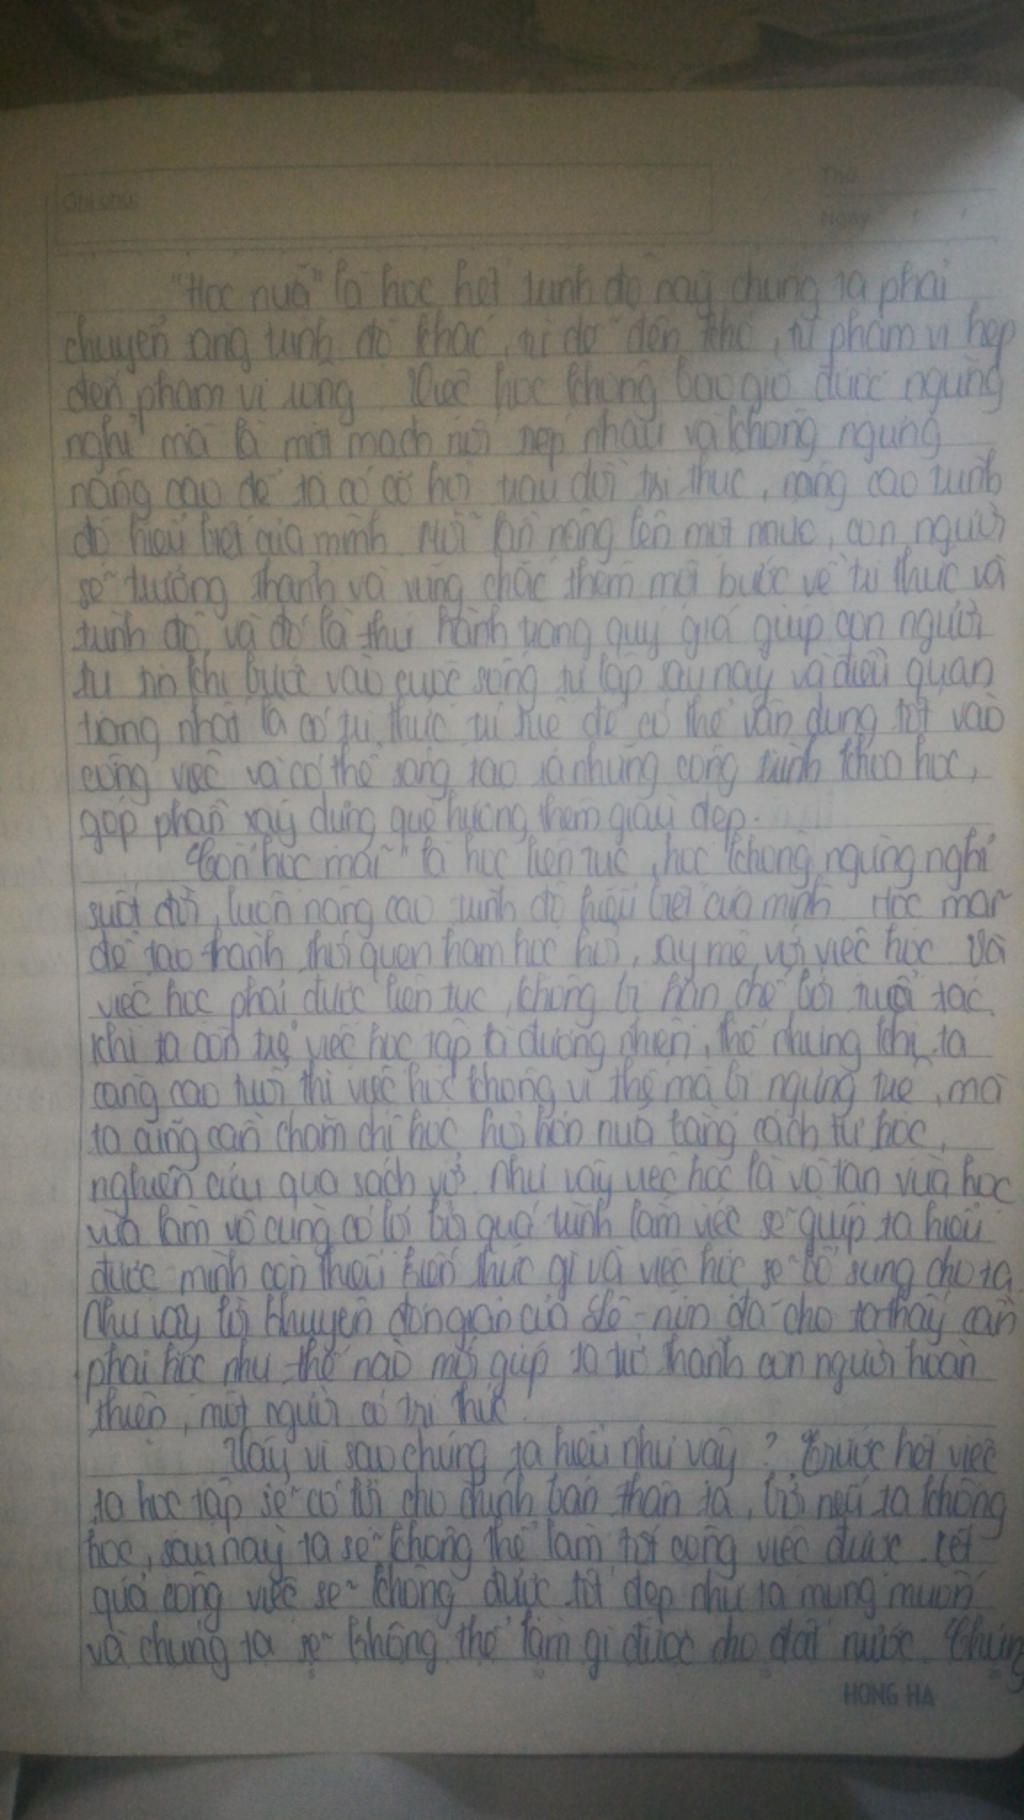 Ghi chú:
Thứ
Ngày / /
"Học nữa" là học hết trình độ này chúng ta phải
chuyển sang trình độ khác, từ dễ đến khó, từ phạm vi hẹp
đến phạm vi rộng. Việc học không bao giờ được ngừng
nghỉ mà là một mạch nối tiếp nhau và không ngừng
nâng cao để ta có cơ hội trau dồi tri thức, nâng cao trình
độ hiểu biết của mình. Mỗi lần nâng lên một mức, con người
sẽ trưởng thành và vững chắc thêm một bước về tri thức và
trình độ, và đó là thứ hành trang quý giá giúp con người
tự tin khi bước vào cuộc sống tự lập sau này và điều quan
trọng nhất là có tri thức, trí tuệ để có thể vận dụng tốt vào
công việc và có thể sáng tạo ra những công trình khoa học,
góp phần xây dựng quê hương thêm giàu đẹp.
"Còn học mãi" là học liên tục, học không ngừng nghỉ
suốt đời, luôn nâng cao trình độ hiểu biết của mình. Học mãi
để tạo thành thói quen ham học hỏi, say mê với việc học. Và
việc học phải được liên tục, không bị hạn chế bởi tuổi tác.
Khi ta còn trẻ việc học tập là đương nhiên, thế nhưng khi ta
càng cao tuổi thì việc học không vì thế mà bị ngừng trệ, mà
ta cũng cần chăm chỉ học hỏi hơn nữa bằng cách tự học,
nghiên cứu qua sách vở. Như vậy việc học là vô tận vừa học
vừa làm vô cùng có lợi bởi quá trình làm việc sẽ giúp ta hiểu
được mình còn thiếu kiến thức gì và việc học sẽ bổ sung cho ta.
Như vậy lời khuyên đơn giản của Lê-nin đã cho ta thấy cần
phải học như thế nào mới giúp ta trở thành con người hoàn
thiện, một người có tri thức.
Vậy vì sao chúng ta hiểu như vậy? Trước hết việc
ta học tập sẽ có lợi cho chính bản thân ta, bởi nếu ta không
học, sau này ta sẽ không thể làm tốt công việc được. Kết
quả công việc sẽ không được tốt đẹp như ta mong muốn
và chúng ta sẽ không thể làm gì được cho đất nước. Chúng
HONG HA